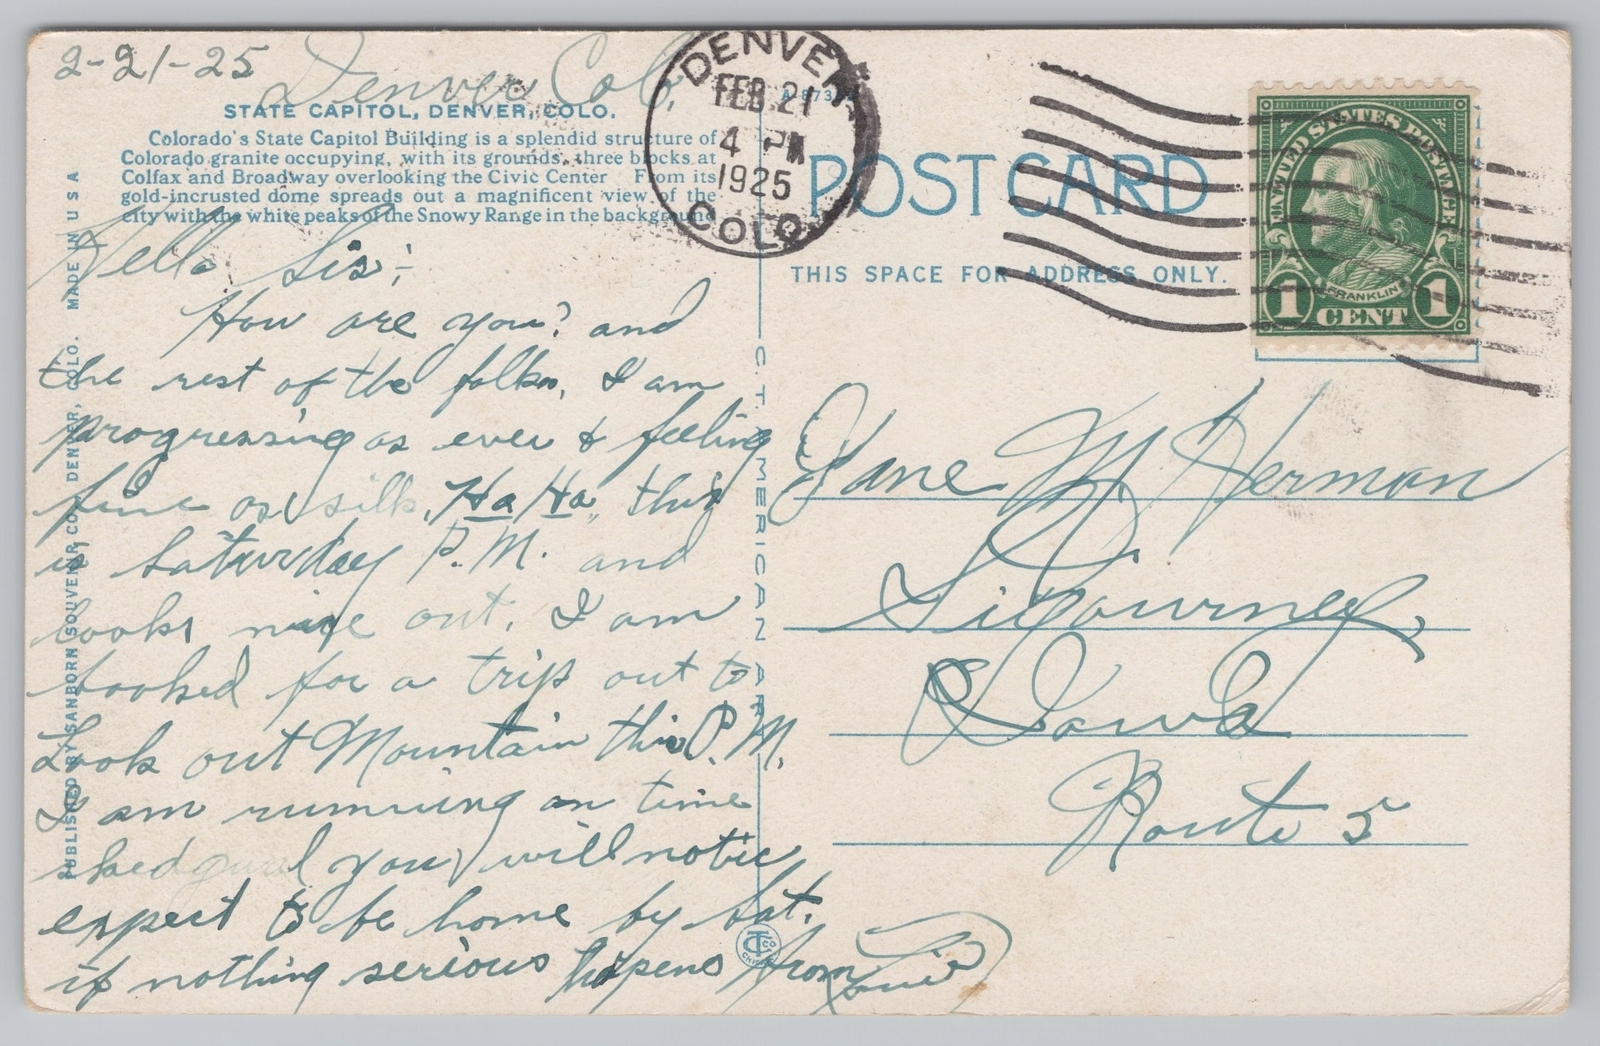 2-21-25 Denver Colo.
STATE CAPITOL, DENVER, COLO.
Colorado's State Capitol Building is a splendid structure of
Colorado granite occupying, with its grounds, three blocks at
Colfax and Broadway overlooking the Civic Center From its
gold-incrusted dome spreads out a magnificent view of the
city with the white peaks of the Snowy Range in the background
Hello Sis;-
How are you? and
the rest of the folks, I am
progressing as ever & feeling
fine as silk, Ha Ha, this
is Saturday P.M. and
looks nice out. I am
booked for a trip out to
Look out Mountain this P.M.
I am running on time
you will notic
expect to be home by Sat.
if nothing serious happens from
PUBLISHED BY SANBORN SOUVENIR CO., DENVER, COLO. MADE IN U S A
C. T. AMERICAN ART
DENVER
FEB 21
4 PM
1925
COLO.
POST CARD
THIS SPACE FOR ADDRESS ONLY.
UNITED STATES POSTAGE
FRANKLIN
1 CENT 1
Jane M. Herman
Sigourney,
Iowa
Route 5